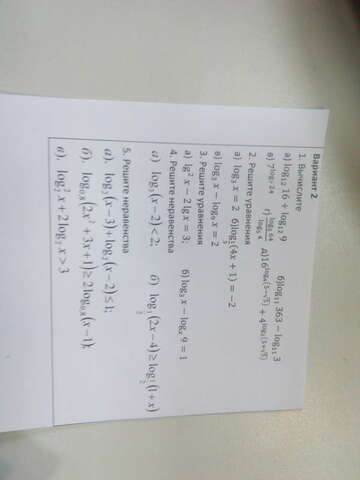 Вариант 2
1. Вычислите
а) log₁₂ 16 + log₁₂ 9 б) log₁₁ 363 − log₁₁ 3
в) 7^(log₇ 24) г)
2. Решите уравнения
а) log₃ x = 2 б) (4x + 1) = −2
в) log₃ x − log₉ x = 2
3. Решите уравнения
а) lg² x − 2 lg x = 3; б) log₃ x − logₓ 9 = 1
4. Решите неравенства
а) log₃(x − 2) < 2; б) log_(1/2)(2x − 4) ≥ log_(1/2)(1 + x)
5. Решите неравенства
а). log₂(x − 3) + log₂(x − 2) ≤ 1;
б). (2x² + 3x + 1) ≥ 2 (x − 1);
в). log₂² x + 2 log₂ x > 3